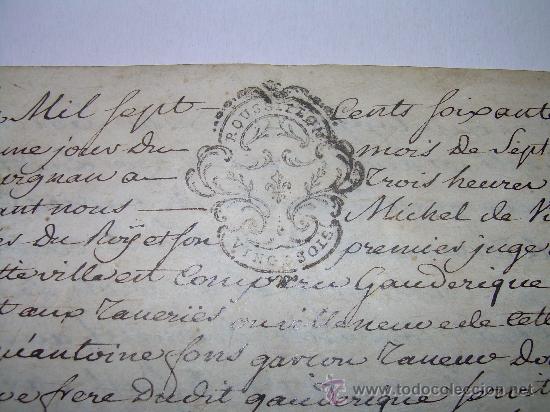 Mil sept Cents soixante
ROUSSILLON
une jour du mois de Sept
a Trois heures
ant nous Michel de
es du Roy et son premier juge
tte ville est Comparu Gauderique
t aux Taneries ou villeneuve de cette
antoine fons garcon Taneur
ve frere Dudit gauderique
todocoleccion
www.todocoleccion.net